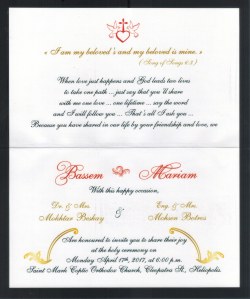 « I am my beloved's and my beloved is mine. »
( Song of Songs 6:3 )
When love just happens and God leads two lives
to take one path ... just say that you'll share
with me one love ... one lifetime ... say the word
and I will follow you ... That's all I ask you ...
Because you have shared in our life by your friendship and love, we
Bassem Mariam
With this happy occasion,
Dr. & Mrs. Eng. & Mrs.
Mokhtar Boshay & Mohsen Botros
Are honoured to invite you to share their joy
at the holy ceremony on
Monday April 17th, 2017, at 6:00 p.m.
Saint Mark Coptic Orthodox Church, Cleopatra St., Heliopolis.